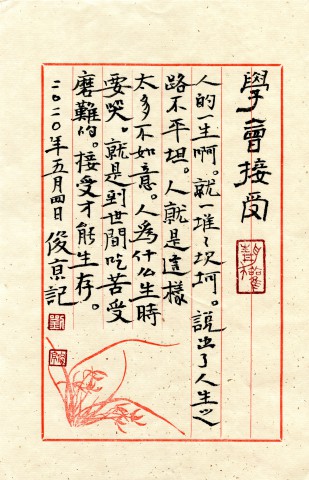 學會接受
人的一生啊。就一堆々坎坷。說出了人生之
路不平坦。人就是這樣
太多不如意。人為什么生時
要哭。就是到世間吃苦受
磨難的。接受才能生存。
二〇二〇年五月四日 俊京記